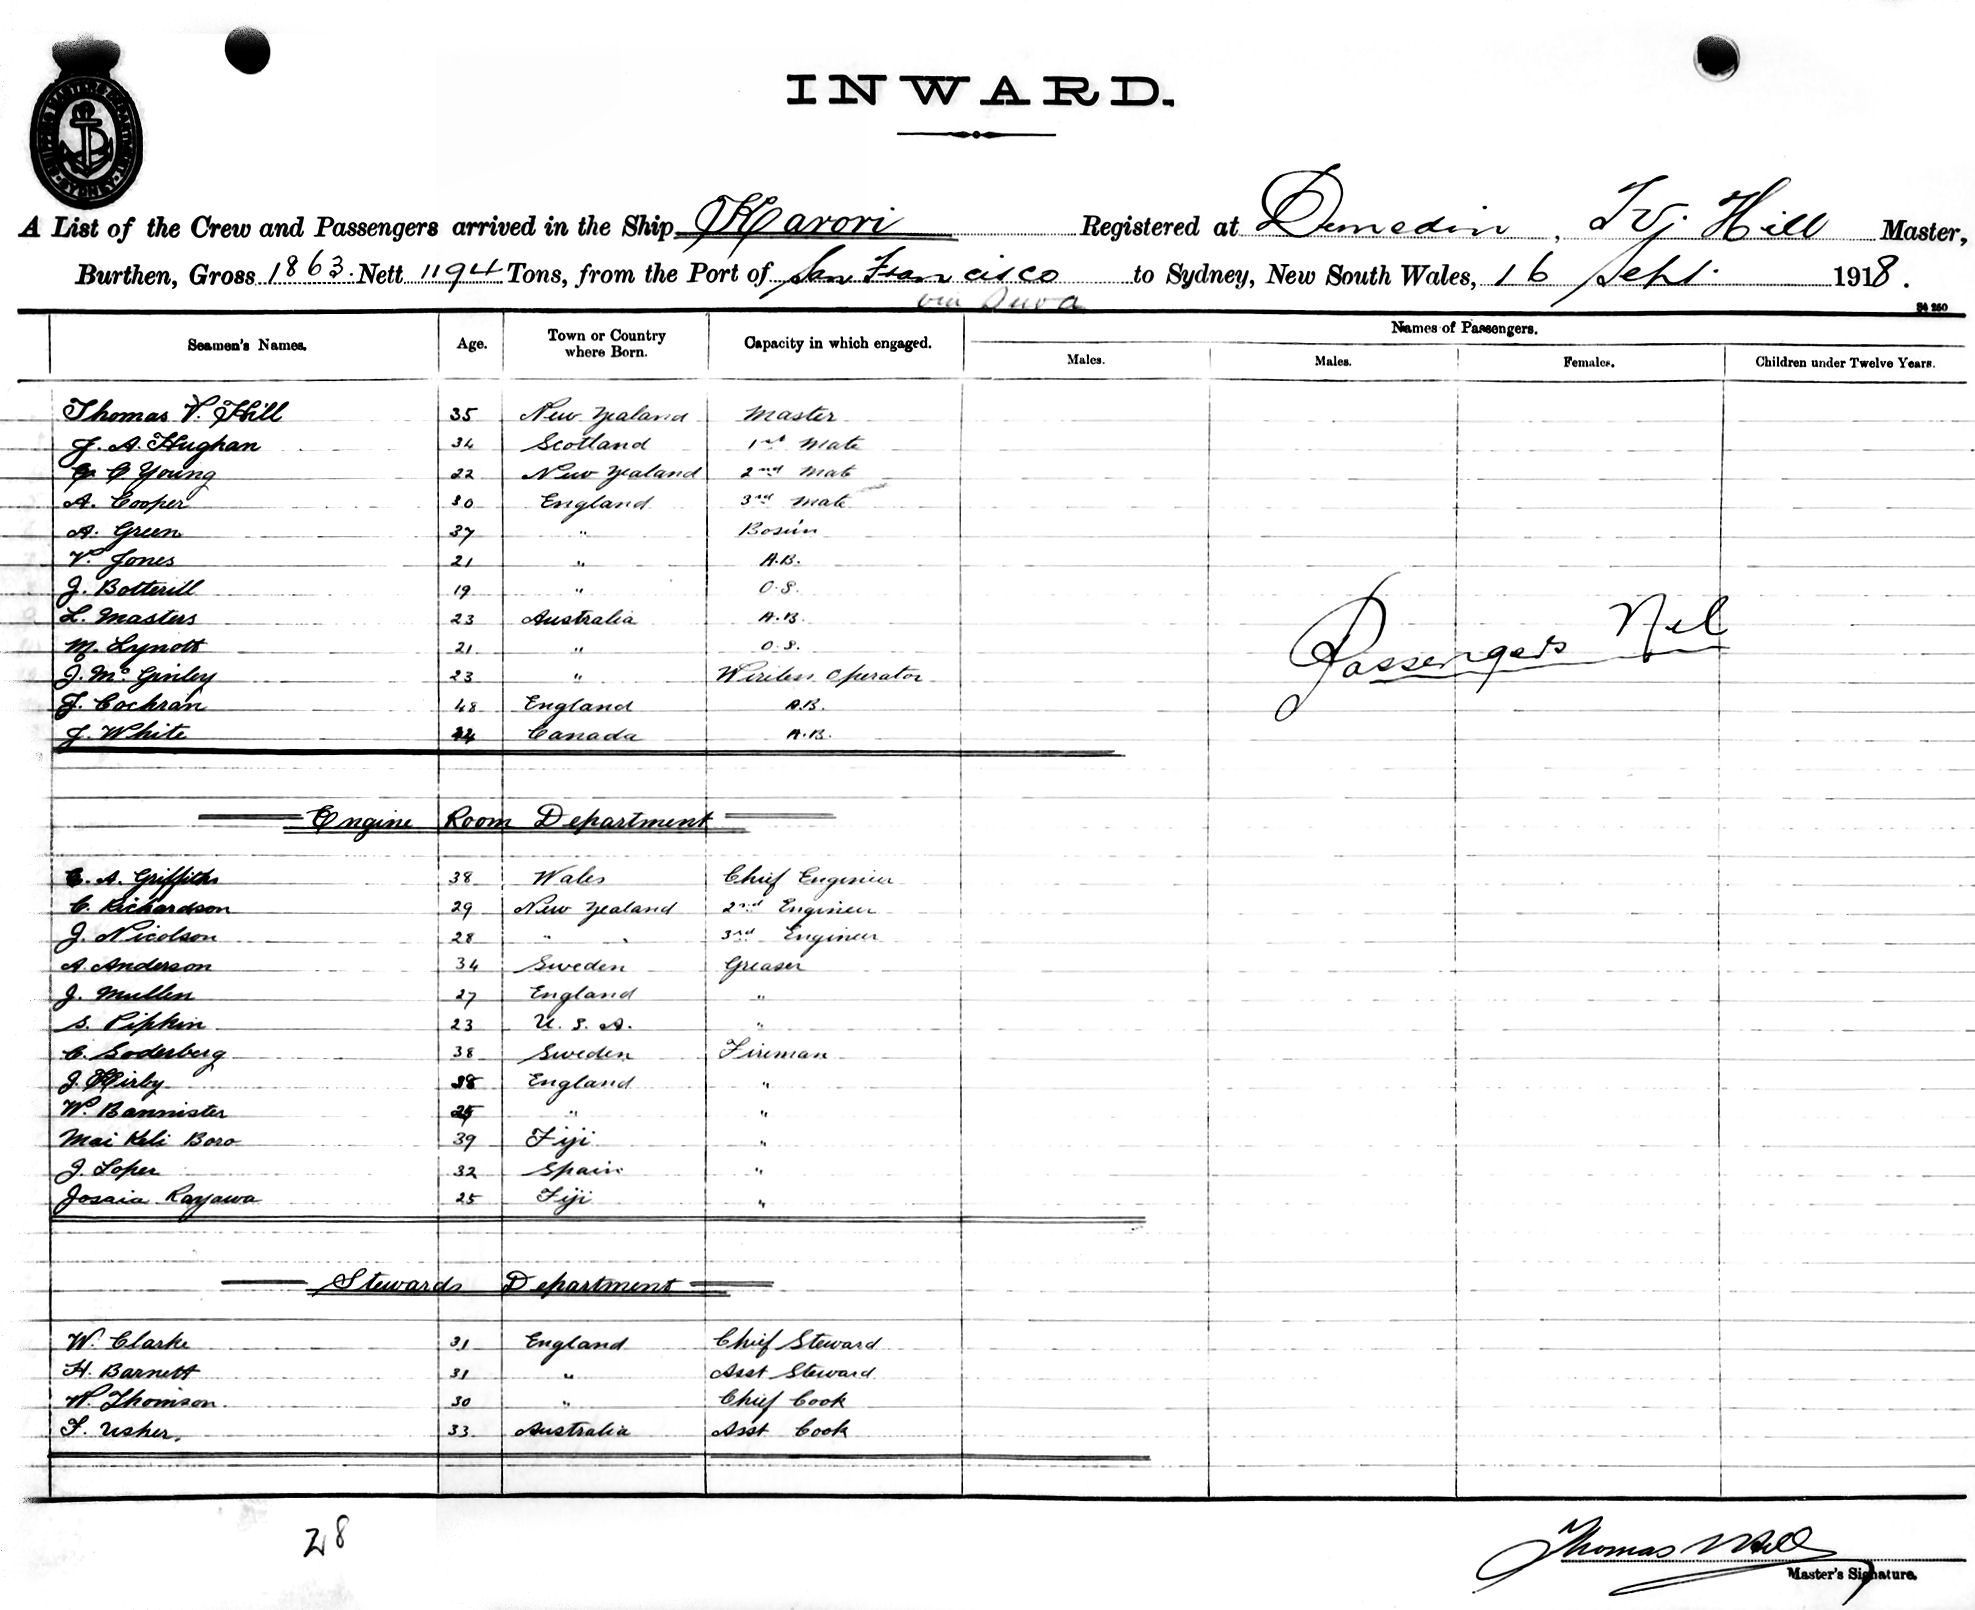 SHIPPING MASTERS DEPARTMENT SYDNEY
INWARD.
A List of the Crew and Passengers arrived in the Ship Karori Registered at Dunedin, T V Hill Master,
Burthen, Gross 1863 Nett 1194 Tons, from the Port of San Francisco to Sydney, New South Wales, 16 Sept. 1918.
via Suva
Seamen's Names. Age. Town or Country where Born. Capacity in which engaged. Names of Passengers.
Males. Males. Females. Children under Twelve Years.
Thomas V. Hill 35 New Zealand Master
J. A. Hughan 34 Scotland 1st Mate
C Young 22 New Zealand 2nd Mate
A. Cooper 30 England 3rd Mate
A. Green 37 " Bosun
V. Jones 21 " A.B.
J. Botterill 19 " O.S.
L. Masters 23 Australia A.B.
M. Lynott 21 " O.S.
J. McGinley 23 " Wireless Operator
J. Cochran 48 England A.B.
J. White Canada A.B.
Passengers Nil
Engine Room Department
C. A. Griffiths 38 Wales Chief Engineer
C. Richardson 29 New Zealand 2nd Engineer
J. Nicolson 28 " " 3rd Engineer
A. Anderson 34 Sweden Greaser
J. Mullen 27 England "
S. Pipkin 23 U. S. A. "
C. Soderberg 38 Sweden Fireman
J. Kirby 38 England "
W. Bannister " "
Mai Keli Boro 39 Fiji "
J. Loper 32 Spain "
Josaia Rayawa 25 Fiji "
Stewards Department
W. Clarke 31 England Chief Steward
H. Barnett 31 " Asst Steward
W. Thomson. 30 " Chief Cook
F. Usher. 33 Australia Asst Cook
28
Thomas V Hill
Master's Signature.